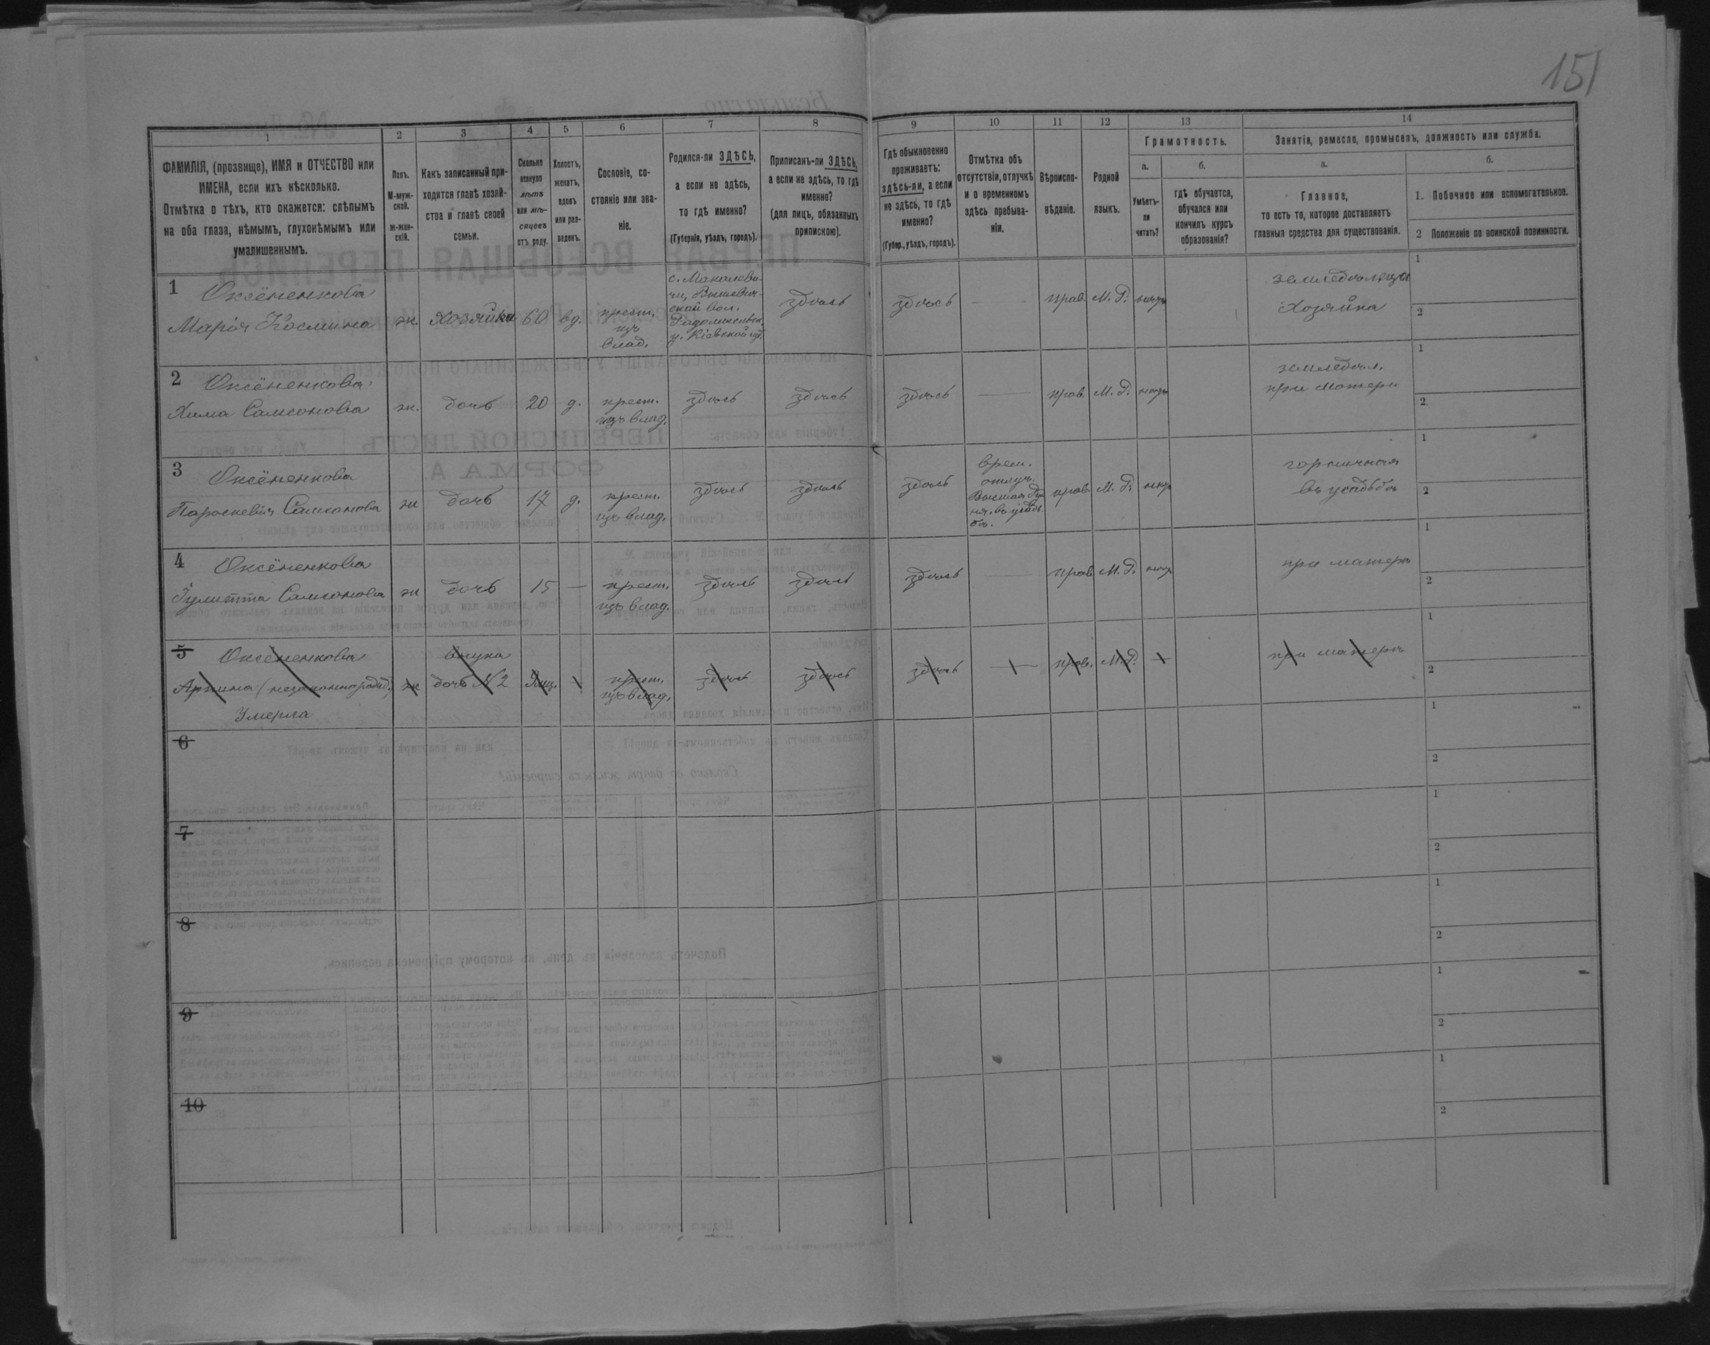 151
1
2
3
4
5
6
7
8
9
10
11
12
13
14
ФАМИЛІЯ, (прозвище), ИМЯ и ОТЧЕСТВО или
ИМЕНА, если ихъ нѣсколько.
Отмѣтка о тѣхъ, кто окажется: слѣпымъ
на оба глаза, нѣмымъ, глухонѣмымъ или
умалишеннымъ.
Полъ.
М-муж-
ской.
Ж-жен-
скій.
Какъ записанный при-
ходится главѣ хозяй-
ства и главѣ своей
семьи.
Сколько
минуло
лѣтъ
или мѣ-
сяцевъ
отъ роду.
Холостъ,
женатъ,
вдовъ
или раз-
веденъ.
Сословіе, со-
стояніе или зва-
ніе.
Родился-ли ЗДѢСЬ,
а если не здѣсь,
то гдѣ именно?
(Губернія, уѣздъ, городъ).
Приписанъ-ли ЗДѢСЬ,
а если не здѣсь, то гдѣ
именно?
(для лицъ, обязанныхъ
припискою).
Гдѣ обыкновенно
проживаетъ:
здѣсь-ли, а если
не здѣсь, то гдѣ
именно?
(Губер., уѣздъ, городъ).
Отмѣтка объ
отсутствіи, отлучкѣ
и о временномъ
здѣсь пребыва-
ніи.
Вѣроиспо-
вѣданіе.
Родной
языкъ.
Грамотность.
а.
Умѣетъ-
ли
читать?
б.
гдѣ обучается,
обучался или
кончилъ курсъ
образованія?
Занятія, ремесло, промыселъ, должность или служба.
а.
Главное,
то есть то, которое доставляетъ
главныя средства для существованія.
б.
1. Побочное или вспомогательное.
2 Положеніе по воинской повинности.
1
Оксёненкова
Марія Космина
ж.
хозяйка
60
вд.
крест.
изъ
влад.
с. Макалеви-
чи, Вышевич-
ской вол.
Радомысльск.
у. Кіевской губ.
здѣсь
здѣсь
прав.
М. д.
негр.
земледѣлецъ
Хозяйка
1
2
2
Оксёненкова
Хима Самсонова
ж.
дочь
20
д.
крест.
изъ влад.
здѣсь
здѣсь
здѣсь
прав.
М. д.
негр.
земледѣл.
при матери
1
2
3
Оксёненкова
Параскевія Самсонова
ж
дочь
17
д.
крест.
изъ влад.
здѣсь
здѣсь
здѣсь
врем.
отлуч.
прав.
М. д.
негр.
горничная
въ усадьбѣ
1
2
4
Оксёненкова
Іулитта Самсонова
ж
дочь
15
—
крест.
изъ влад.
здѣсь
здѣсь
здѣсь
прав.
М. д.
негр.
при матери
1
2
5
Оксёненкова
Арпина (незаконнорожд.)
Умерла
ж
внука
дочь №2
крест.
изъ влад.
здѣсь
здѣсь
здѣсь
прав.
М. д.
при матери
1
2
6
1
2
7
1
2
8
1
2
9
1
2
10
1
2